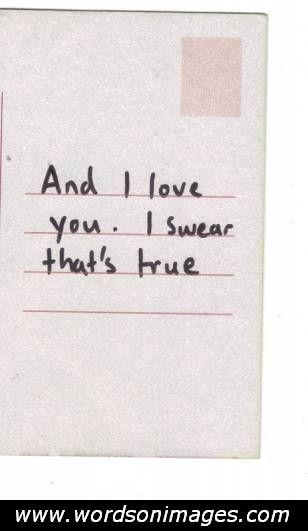 And I love
you. I swear
that's true
www.wordsonimages.com